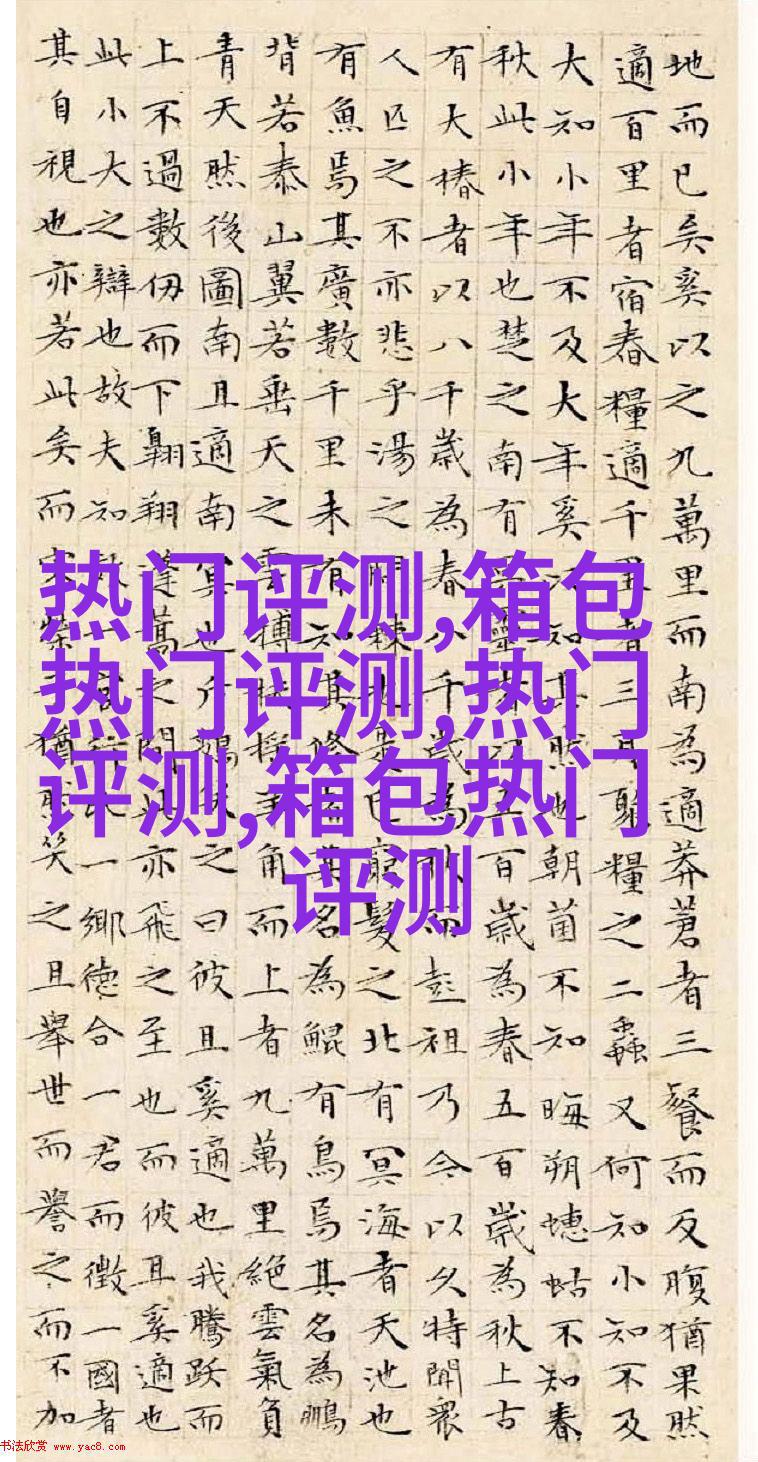 地而已矣奚以之九萬里而南為適莽蒼者三餐而反腹猶果然
適百里者宿舂糧適千里者三月聚糧之二蟲又何知小知不及
大知小年不及大年奚以知其然也朝菌不知晦朔蟪蛄不知春
秋此小年也楚之南有冥靈者以五百歲為春五百歲為秋上古
有大椿者以八千歲為春八千歲為秋而彭祖乃今以久特聞眾
人匹之不亦悲乎湯之問棘也是已窮髮之北有冥海者天池也
有魚焉其廣數千里未有知其修者其名為鯤有鳥焉其名為鵬
背若泰山翼若垂天之雲摶扶搖羊角而上者九萬里絕雲氣負
青天然後圖南且適南冥也斥鴳笑之曰彼且奚適也我騰躍而
上不過數仞而下翱翔蓬蒿之間此亦飛之至也而彼且奚適也
此小大之辯也故夫知效一官行比一鄉德合一君而徵一國者
其自視也亦若此矣而宋榮子猶然笑之且舉世而譽之而不加
热门评测,箱包
热门评测,热门
评测,箱包热门
评测
书法欣赏 www.yac8.com